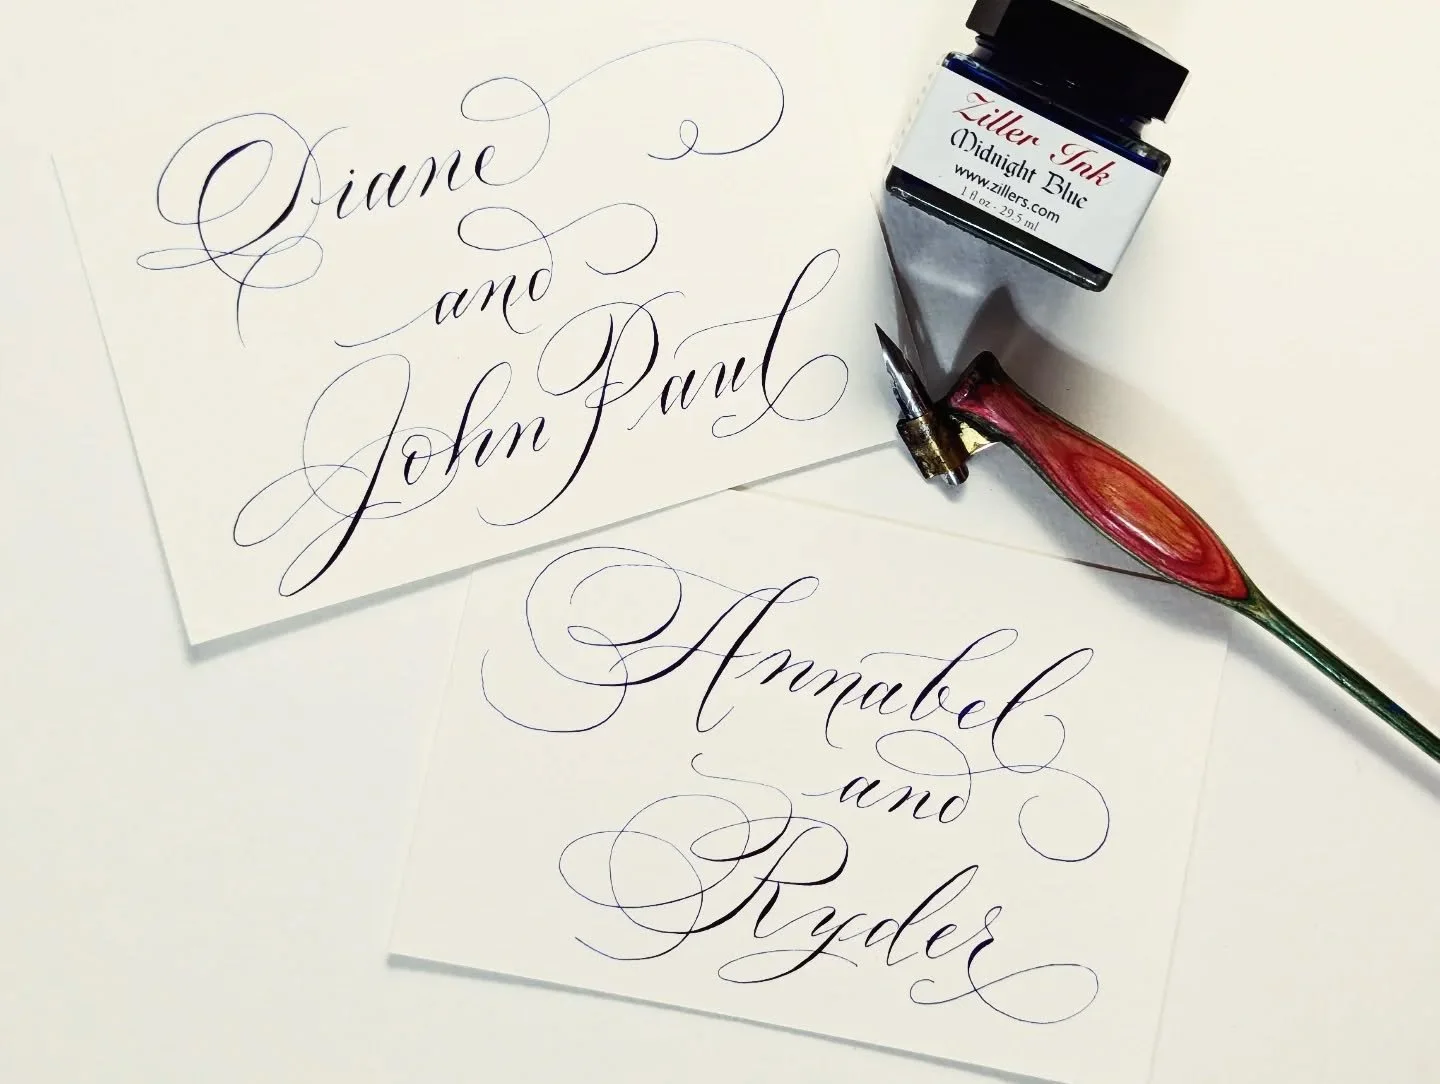 Diane
and
John Paul
Ziller Ink
Midnight Blue
www.zillers.com
1 fl oz - 29.5 ml
Annabel
and
Ryder